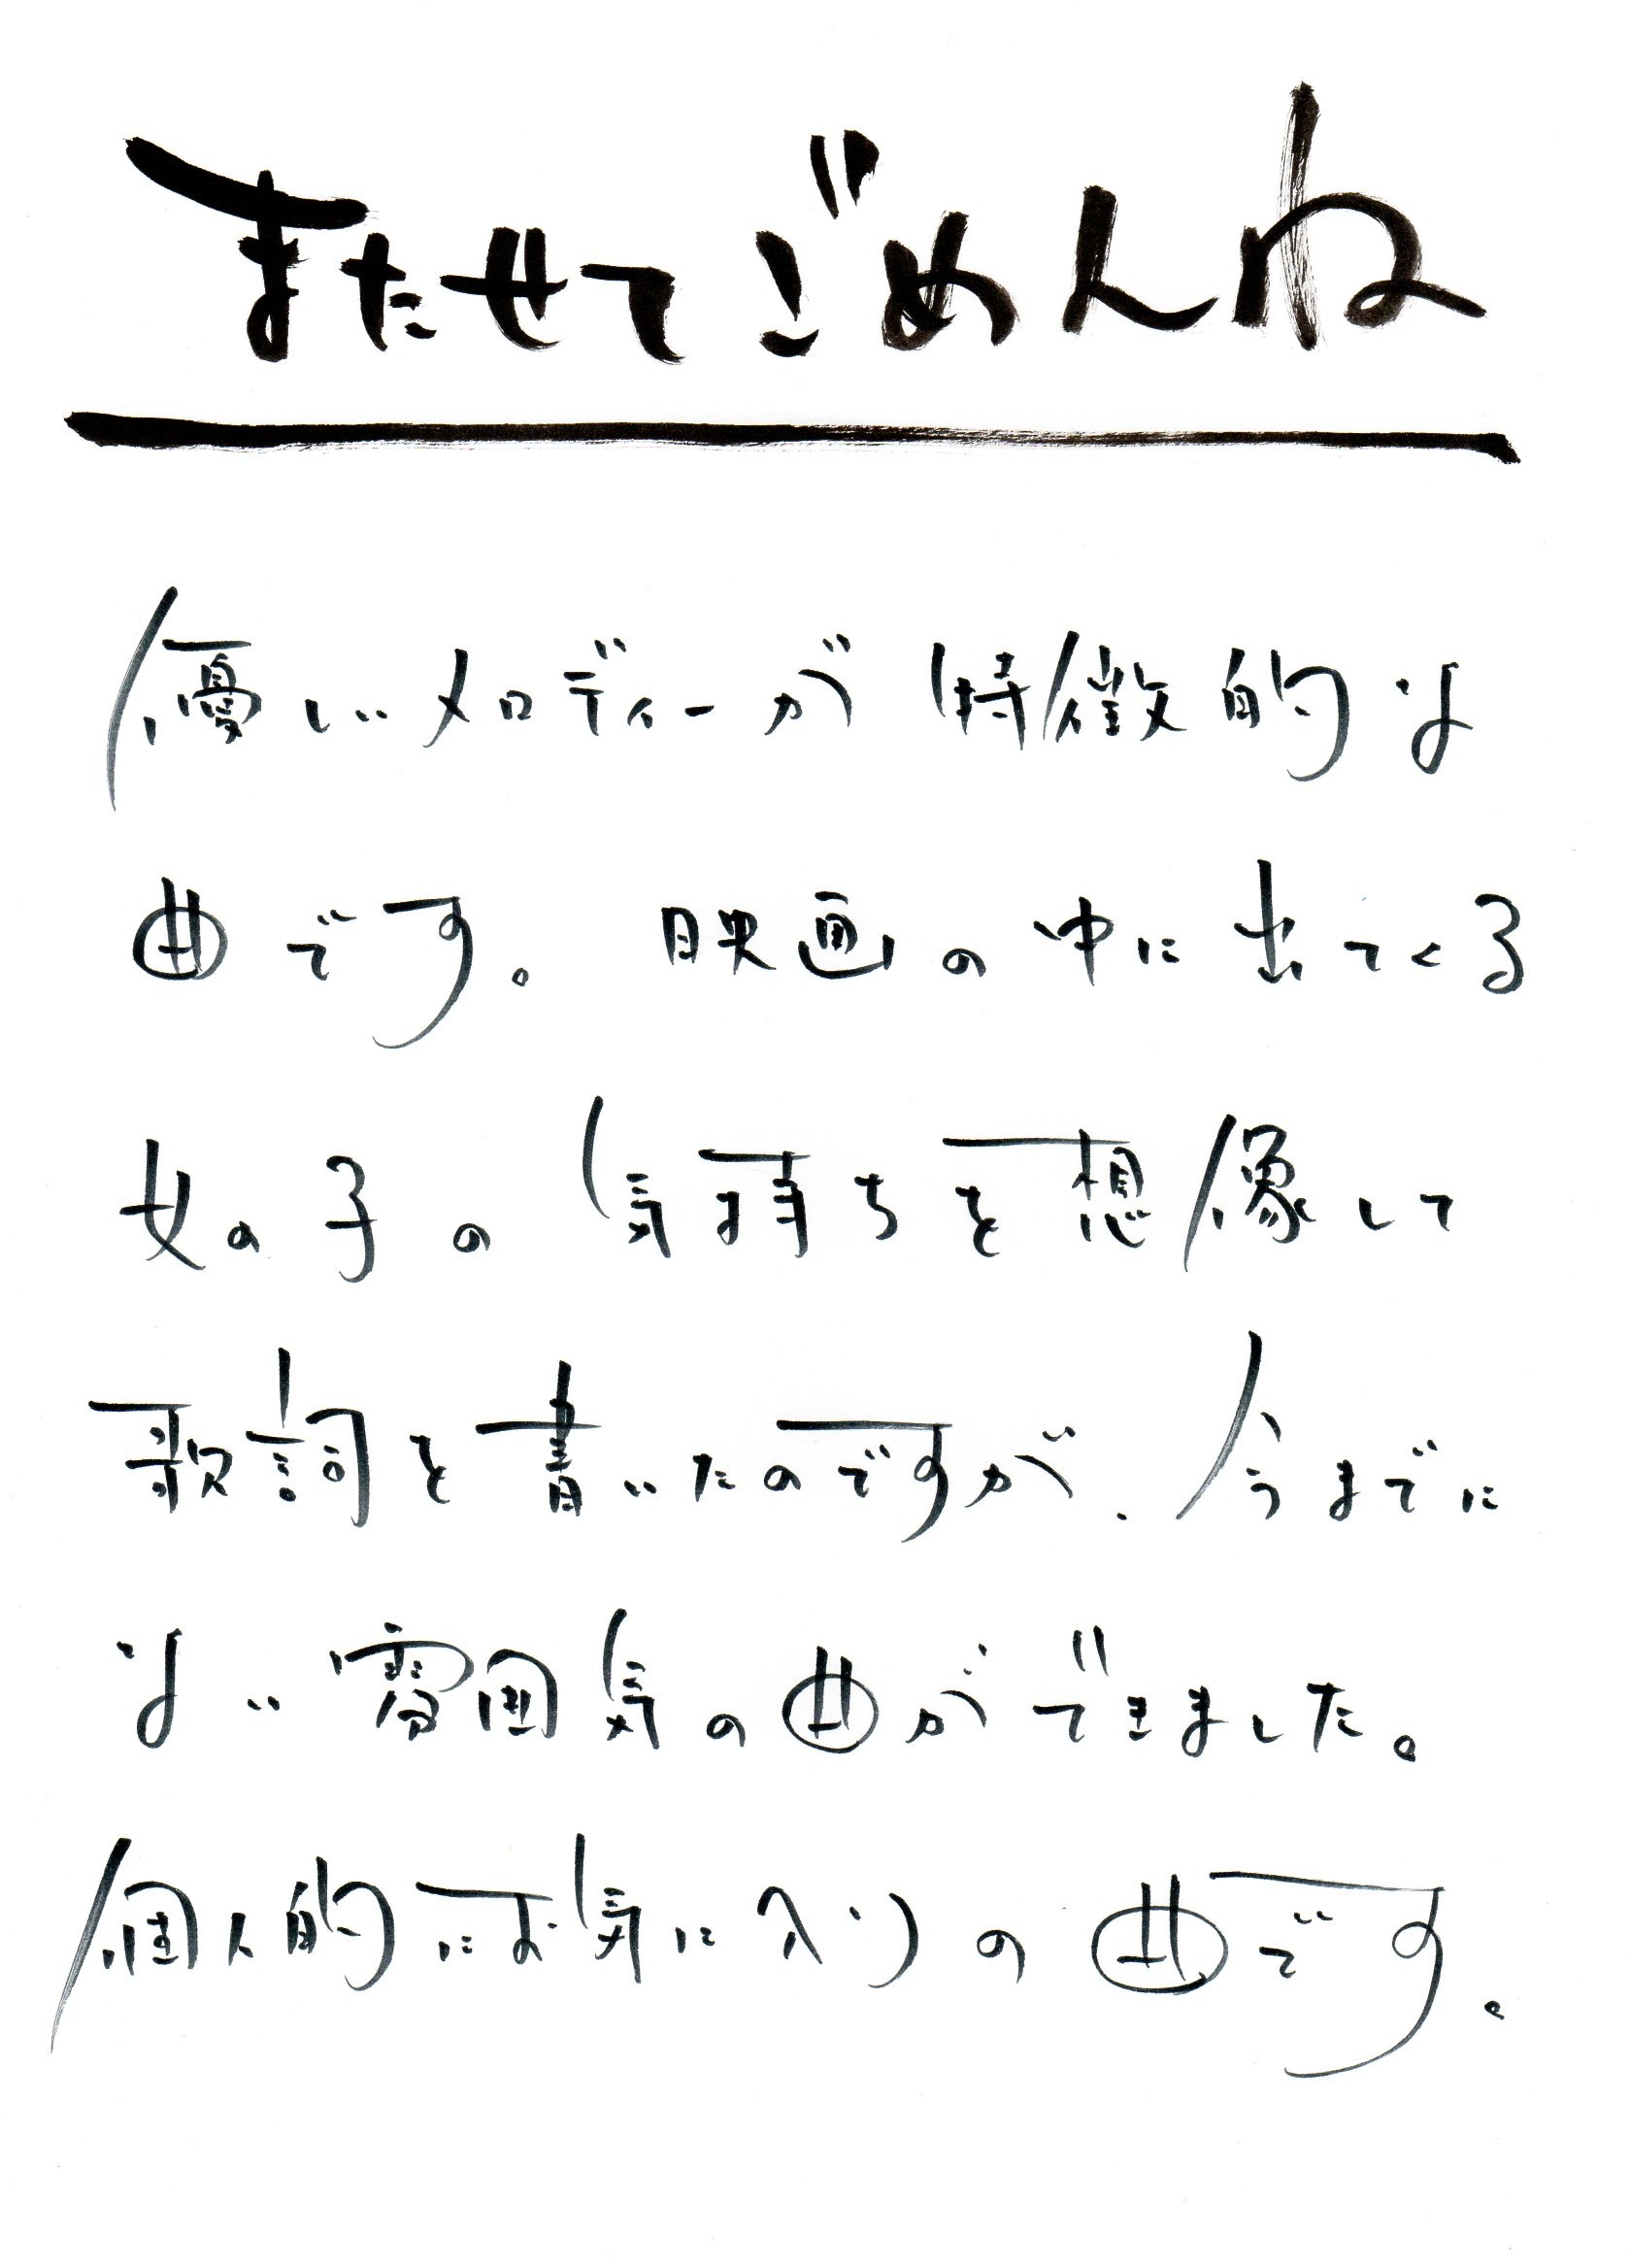 またせてごめんね
優しいメロディーが特徴的な
曲です。映画の中に出てくる
女の子の気持ちを想像して
歌詞を書いたのですが、今までに
ない雰囲気の曲ができました。
個人的にお気に入りの曲です。